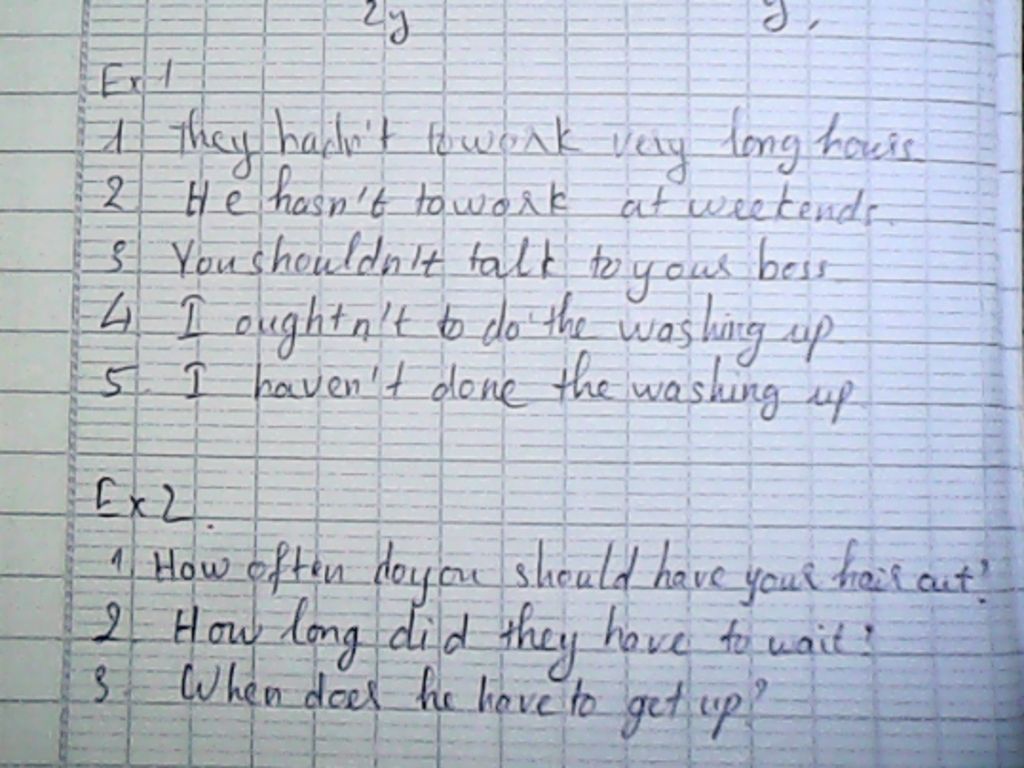 2y y,
Ex 1
1 They hadn't to work very long hours
2 He hasn't to work at weekends.
3 You shouldn't talk to your boss
4 I oughtn't to do the washing up
5. I haven't done the washing up
Ex 2.
1 How often do you should have your hair cut?
2 How long did they have to wait?
3 When does he have to get up?